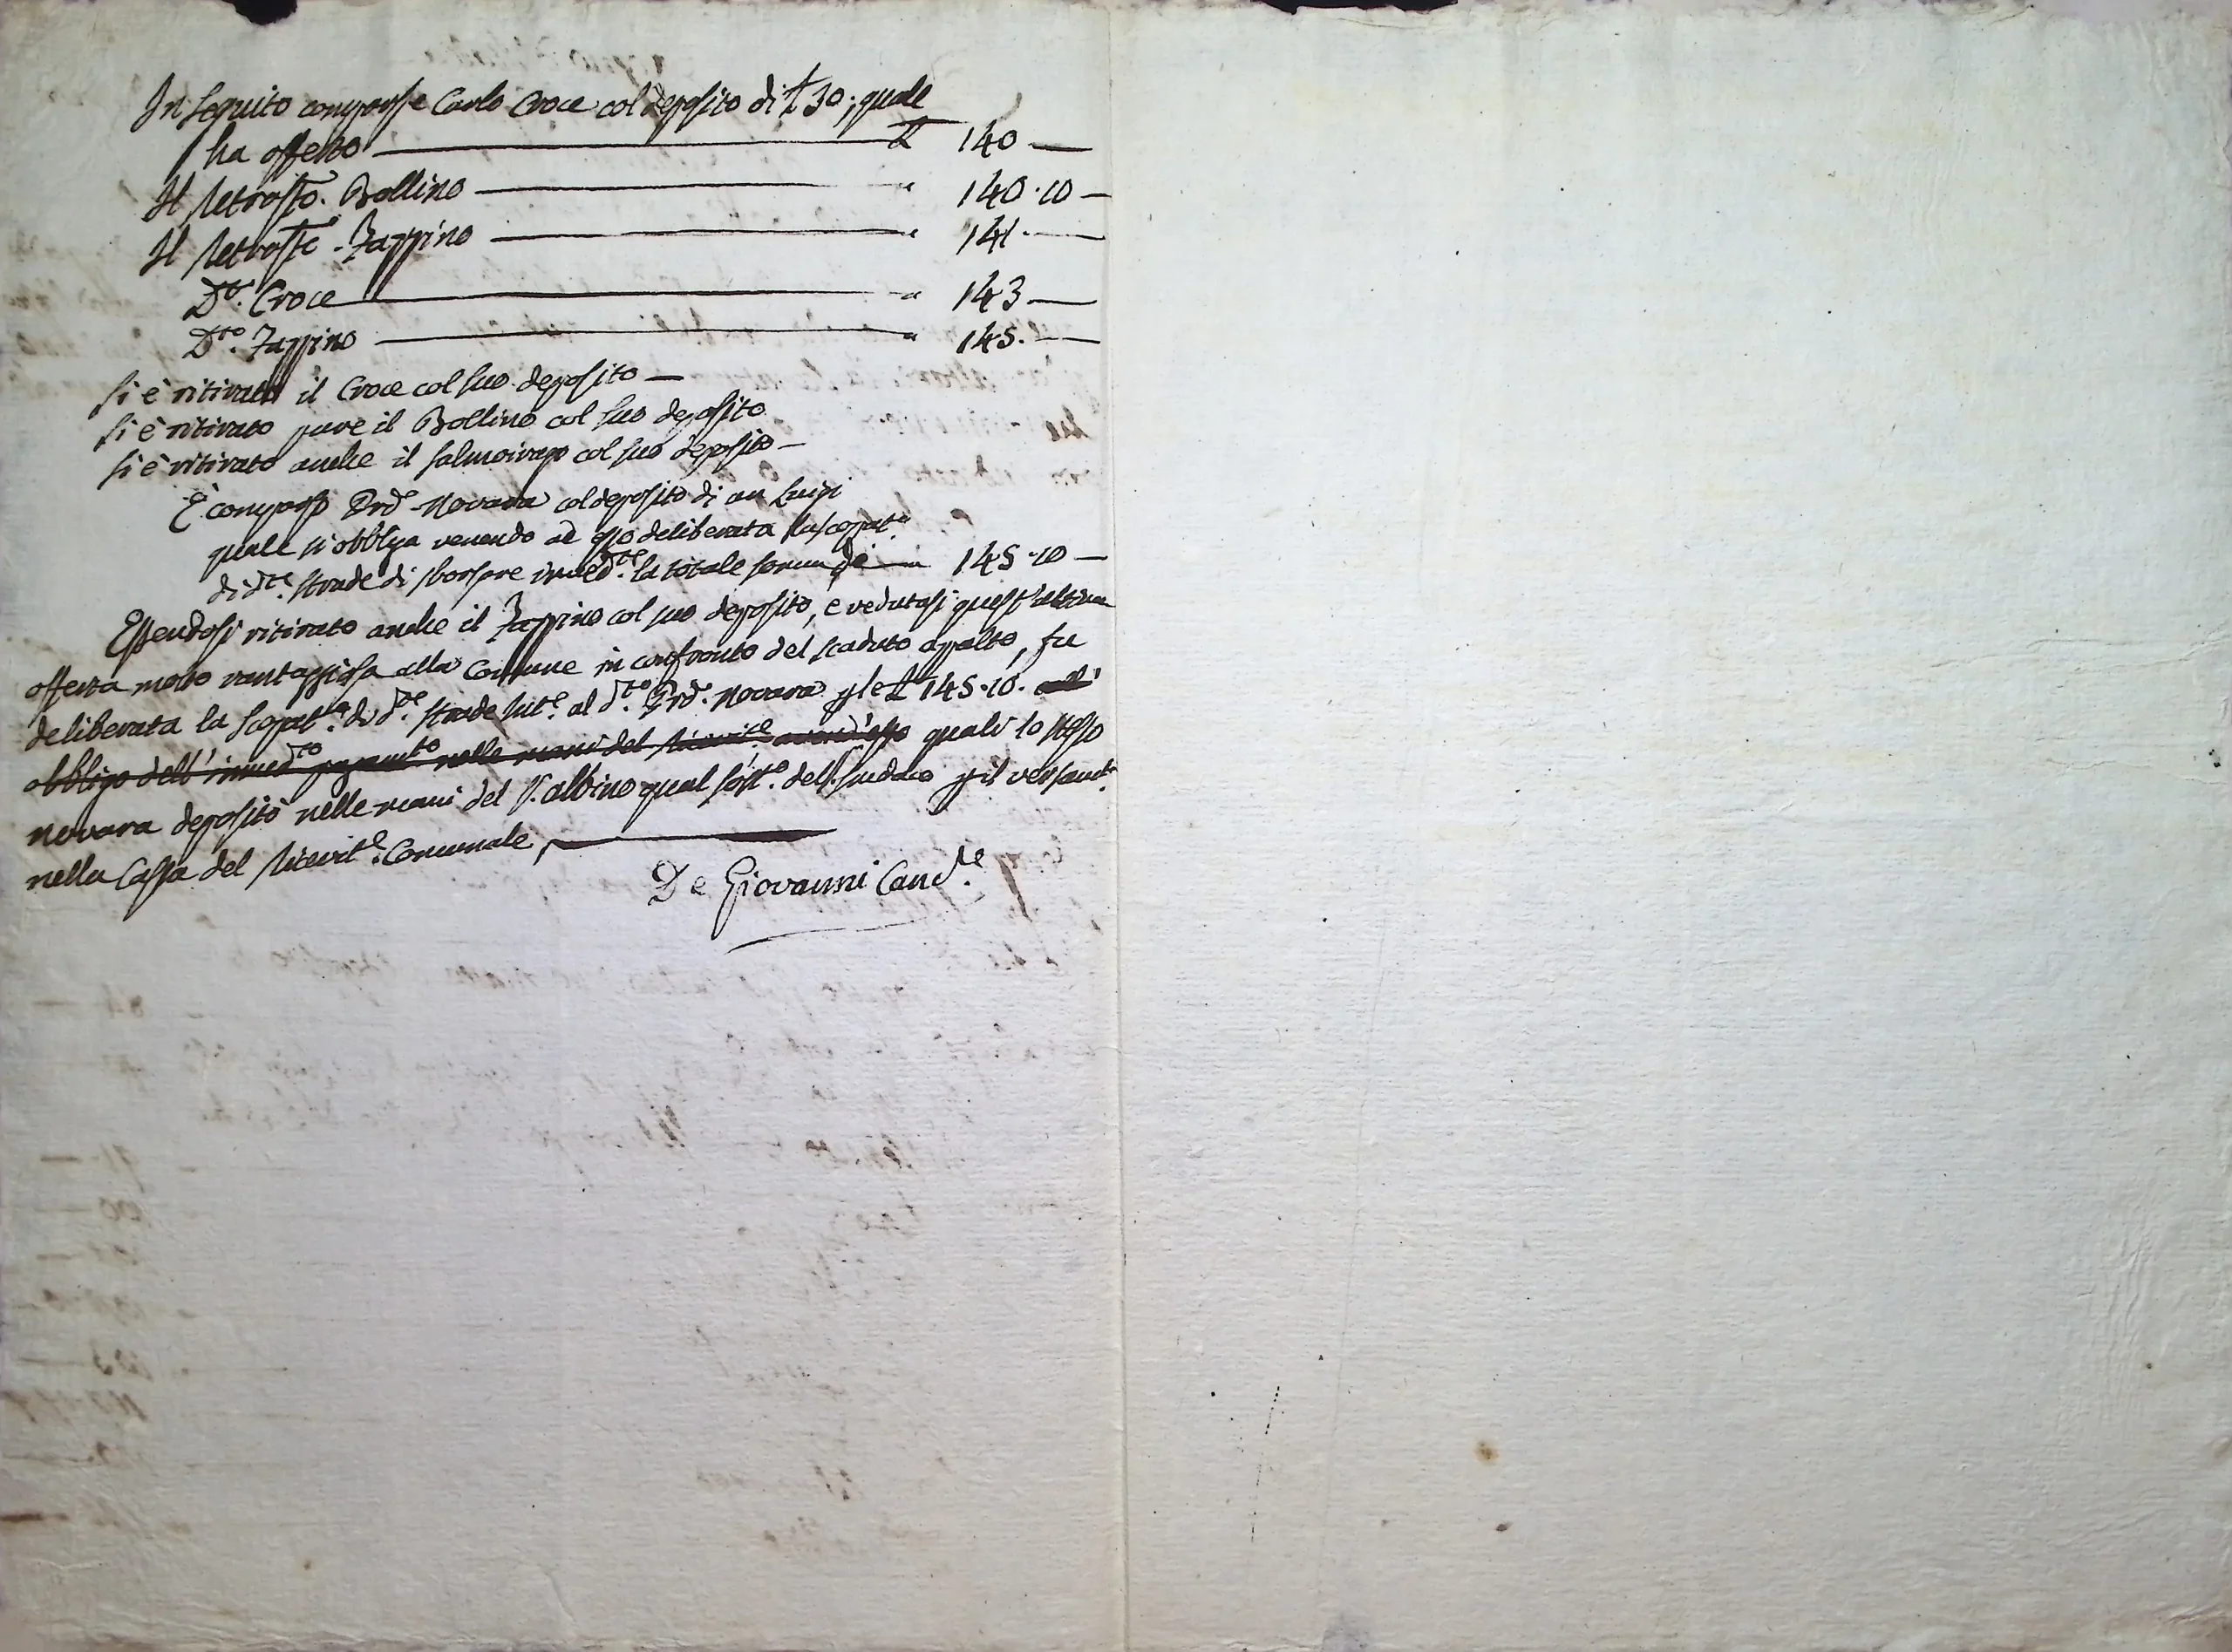 In Seguito comparse Carlo Croce col deposito di £ 30; quale
ha offerto — £ 140 —
Il retrosto. Bollino — " 140.10 —
Il retrosto. Zappino — " 141. —
Dto. Croce — " 143 —
Dto. Zappino — " 145. —
Si è ritirato il Croce col suo deposito —
Si è ritirato pure il Bollino col suo deposito
Si è ritirato anche il Salmoirago col suo deposito —
È comparso Novara col deposito di un Luigi
quale si obbliga venendo ad esso deliberata la scopata.
di dte. strade di sborsare immedte. la totale somma di — 145.10 —
Essendosi ritirato anche il Zappino col suo deposito, e vedutasi quest'ultima
offerta molto vantaggiosa alla Comune in confronto del scaduto appalto, fu
deliberata la scopata. di dte. strade al dto. Novara p le £ 145.10.
obbligo dell'immedto pagamto nelle mani del Ricevite. quali lo stesso
Novara depositò nelle mani del S. Albino qual sostо. del Sindaco p il versamto.
nella Cassa del Ricevite. Comunale,
De Giovanni Cancre.